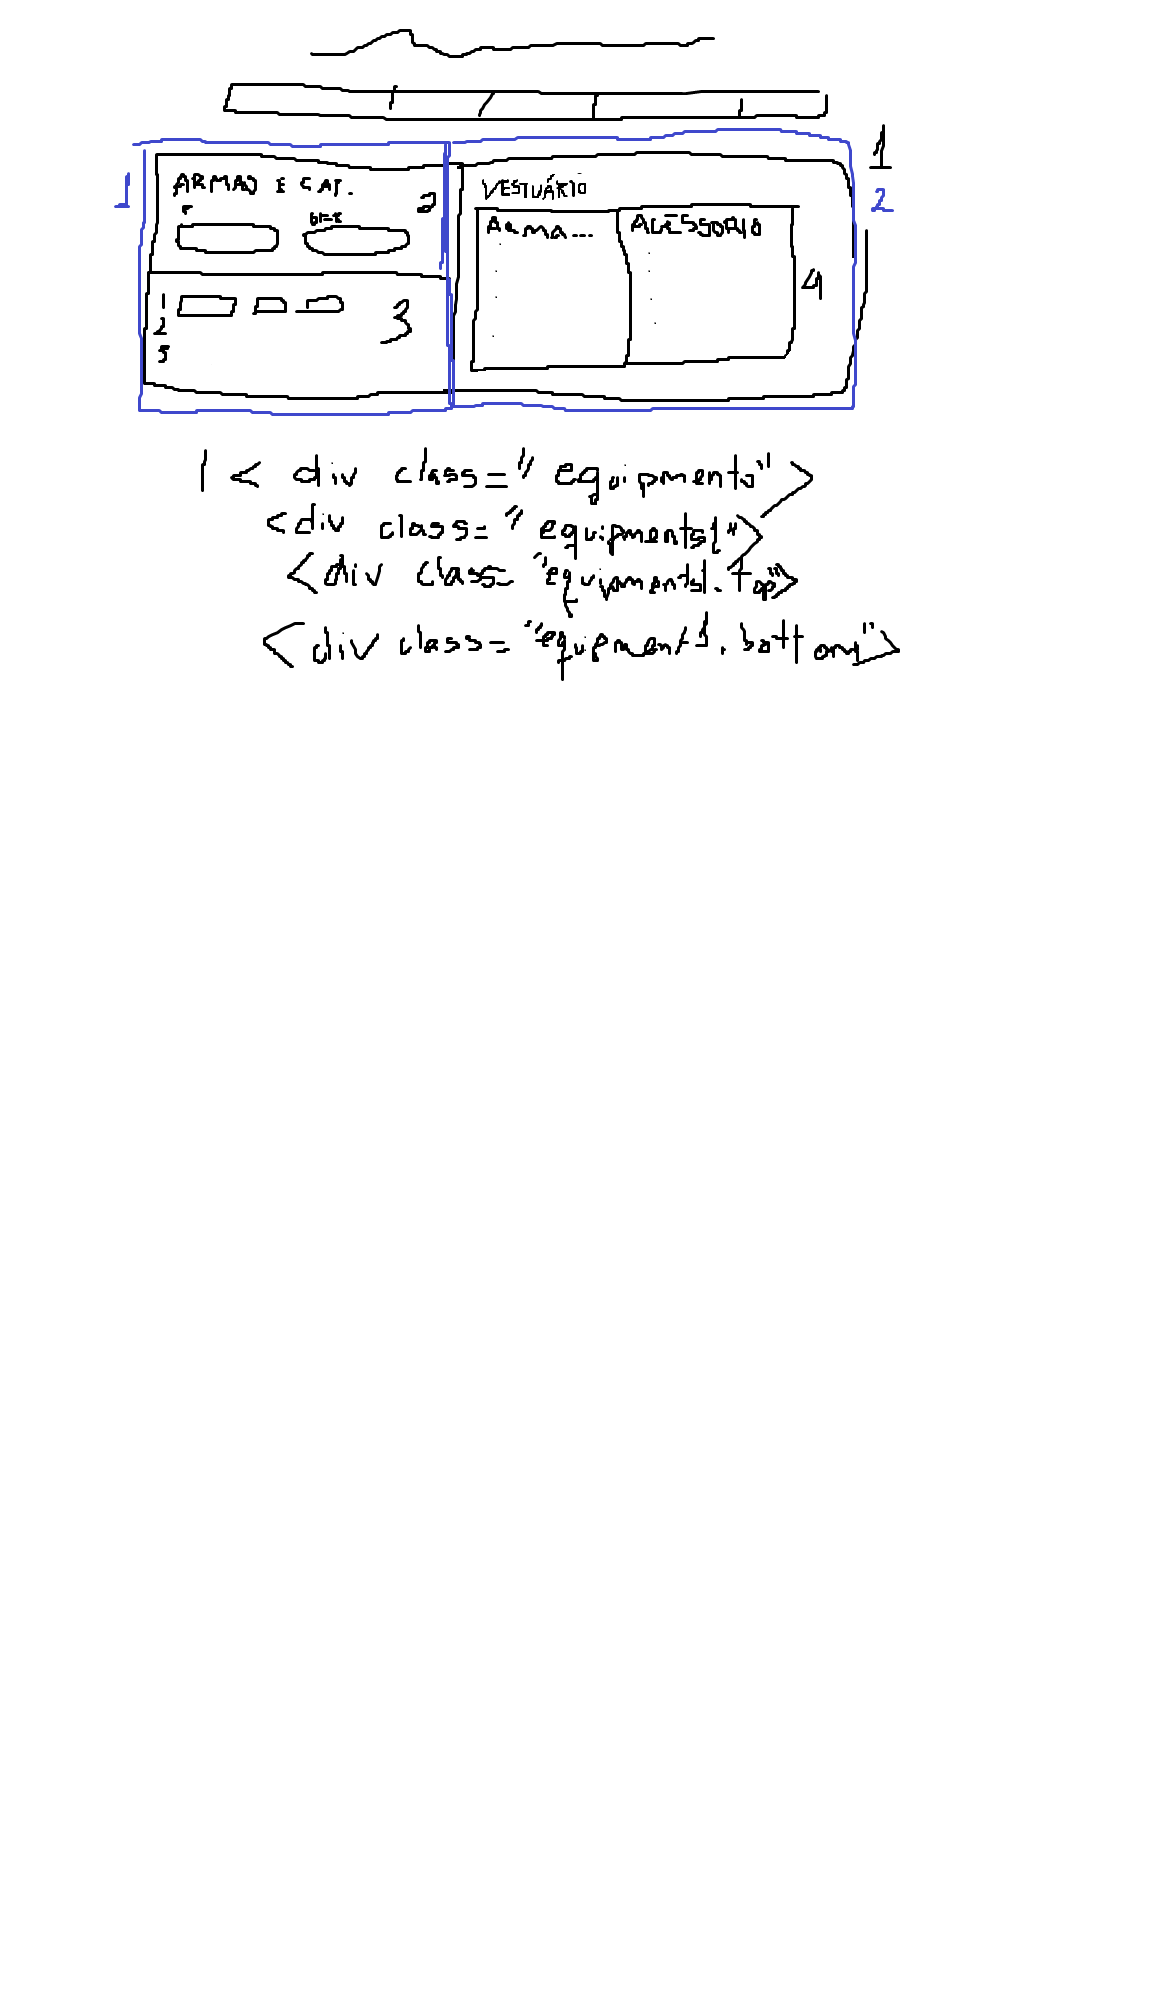 1
1 ARMAO E CAT. 2 VESTUÁRIO 2
ARMA... ACESSORIO
4
1 3
2
5
1 < div class="equipments">
<div class="equipments1">
<div class="equipments1.top">
<div class="equipment1.bottom">